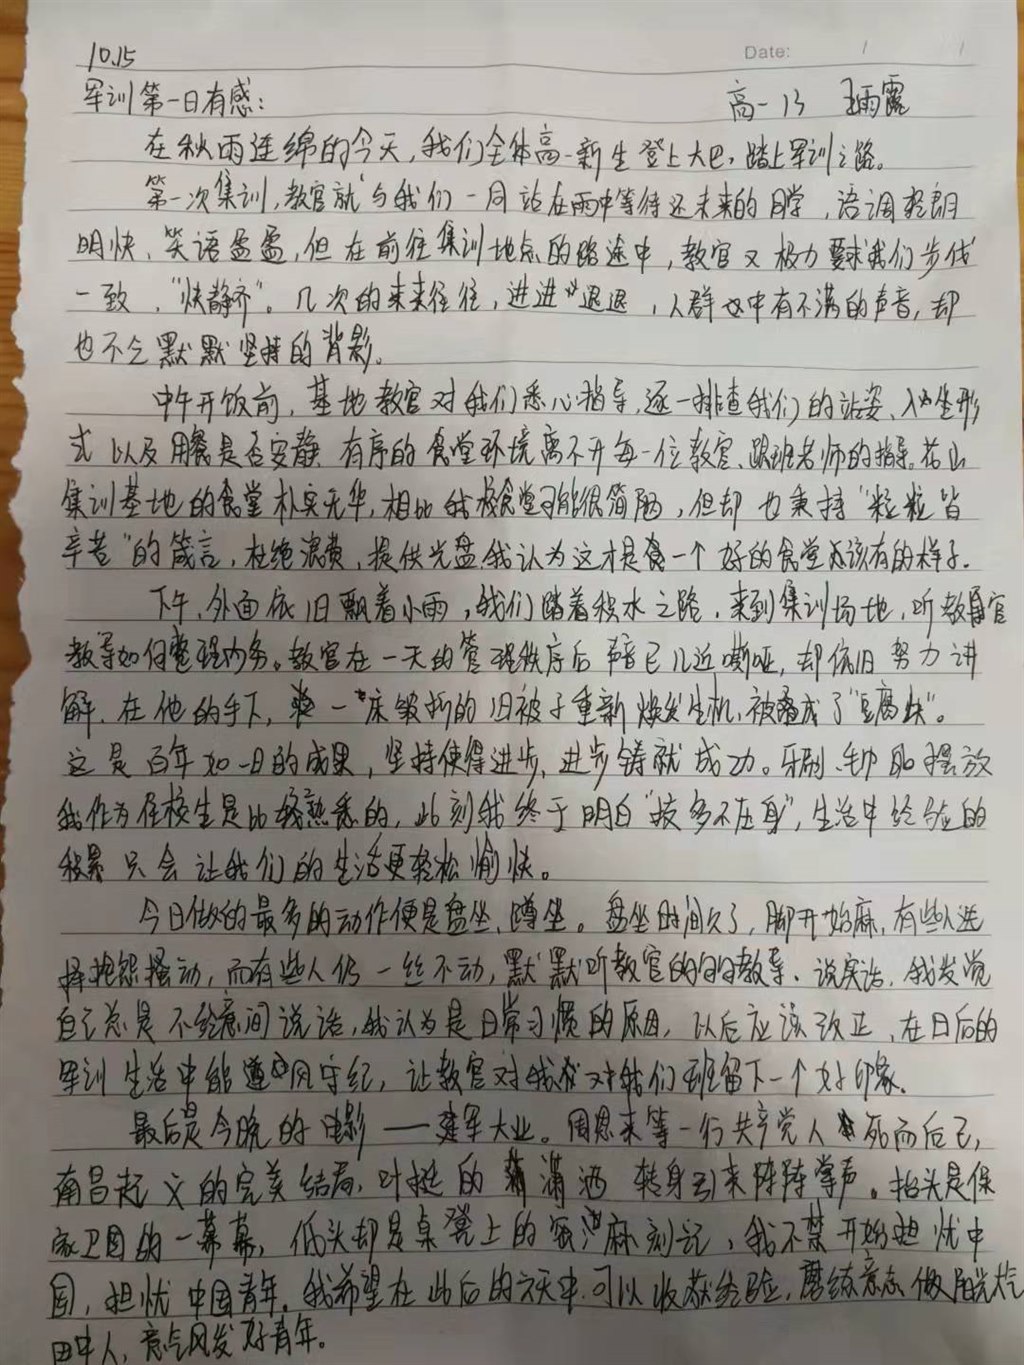 10.15
Date: / /
军训第一日有感：
高一13 王雨露
在秋雨连绵的今天，我们全体高一新生登上大巴，踏上军训之路。
第一次集训，教官就与我们一同站在雨中等待还未来的同学，语调轻朗
明快，笑语盈盈，但在前往集训地点的路途中，教官又极力要求我们步伐
一致，“快静齐”。几次的来来往往，进进退退，人群中有不满的声音，却
也不乏默默坚持的背影。
中午开饭前，基地教官对我们悉心指导，逐一排查我们的站姿、入坐形
式以及用餐是否安静，有序的食堂环境离不开每一位教官、跟班老师的指导。花山
集训基地的食堂朴实无华，相比我校食堂可能很简陋，但却也秉持“粒粒皆
辛苦”的箴言，杜绝浪费，提供光盘，我认为这才是一个好的食堂应该有的样子。
下午，外面依旧飘着小雨，我们踏着积水之路，来到集训场地，听教官
教导如何整理内务。教官在一天的管理秩序后声音已几近嘶哑，却依旧努力讲
解，在他的手下，一床皱折的旧被子重新焕发生机，被叠成了“豆腐块”。
这是百年如一日的成果，坚持使得进步，进步铸就成功。牙刷、毛巾的摆放
我作为住校生是比较熟悉的，此刻我终于明白“技多不压身”，生活中经验的
积累只会让我们的生活更轻松愉快。
今日做的最多的动作便是盘坐、蹲坐。盘坐时间久了，脚开始麻，有些人选
择抱怨骚动，而有些人仍一丝不动，默默听教官的句句教导。说实话，我发觉
自己总是不经意间说话，我认为是日常习惯的原因，以后应该改正，在日后的
军训生活中能遵风守纪，让教官对我们班留下一个好印象。
最后是今晚的电影——建军大业。周恩来等一行共产党人死而后已，
南昌起义的完美结局，叶挺的潇洒转身引来阵阵掌声。抬头是保
家卫国的一幕幕，低头却是桌凳上的密麻刻记，我不禁开始担忧中
国，担忧中国青年。我希望在此后的六天中，可以收获经验，磨练意志，做阳光
田中人，意气风发好青年。